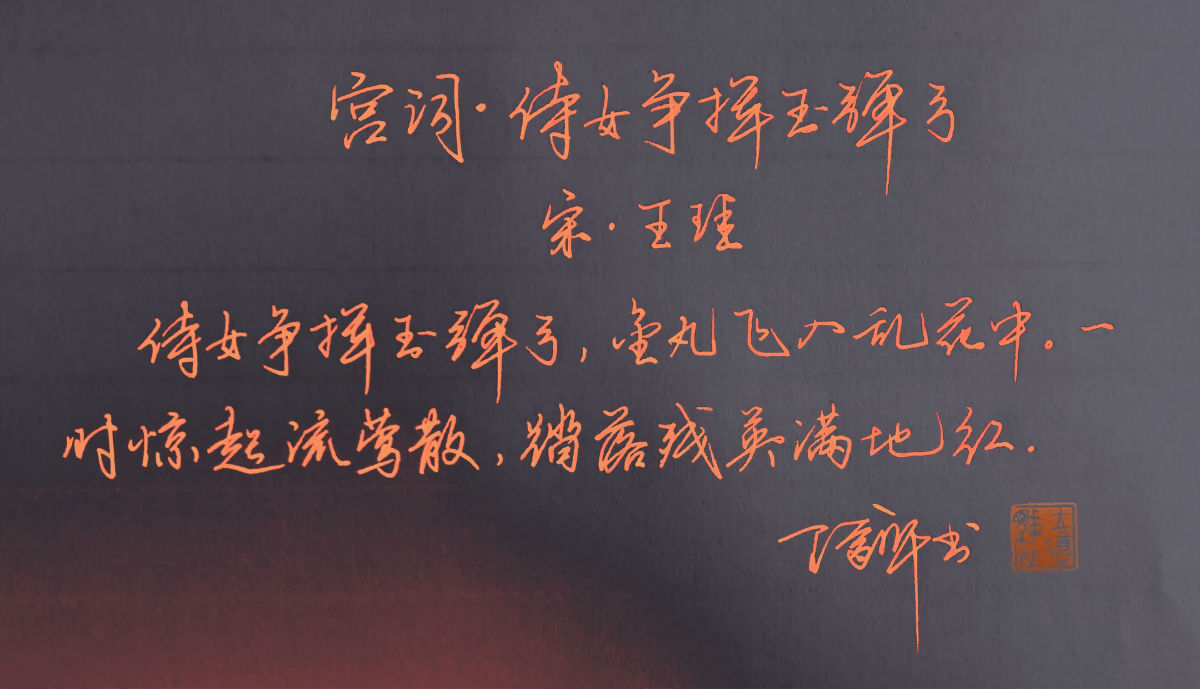 宫词·侍女争挥玉弹弓
宋·王珪
侍女争挥玉弹弓，金丸飞入乱花中。一
时惊起流莺散，踏落残英满地红.
书